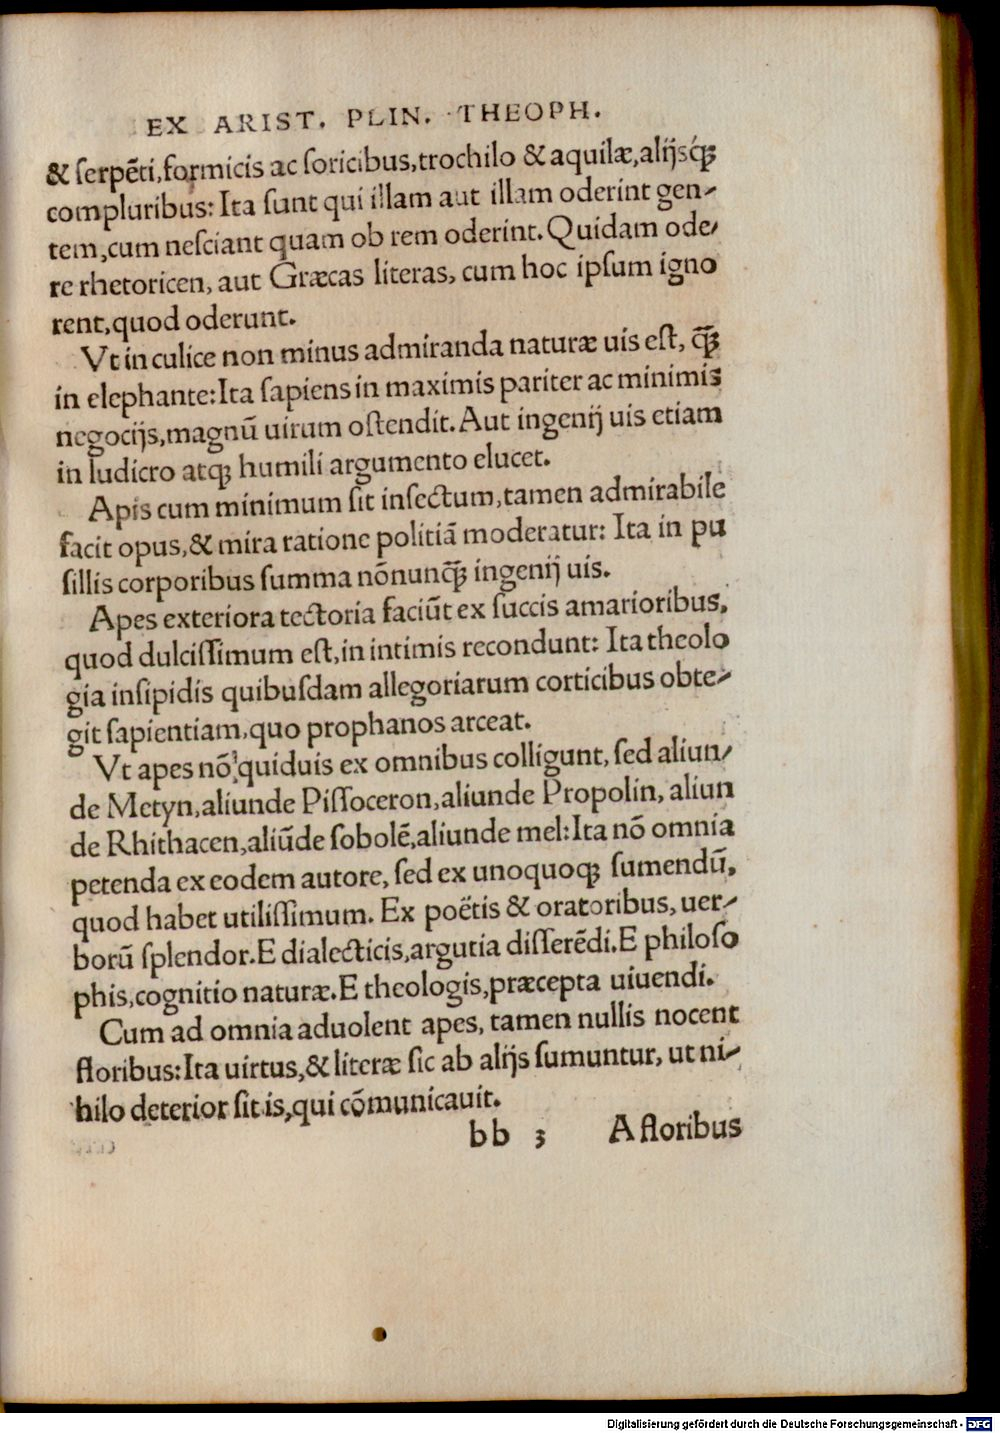 EX ARIST. PLIN. THEOPH.
& ſerpẽti,formicis ac ſoricibus,trochilo & aquilæ,alijsq́ꝫ
compluribus: Ita ſunt qui illam aut illam oderint gen⸗
tem,cum neſciant quam ob rem oderint. Quidam ode⸗
re rhetoricen, aut Græcas literas, cum hoc ipſum igno
rent,quod oderunt.
Vt in culice non minus admiranda naturæ uis eſt, q̃ꝫ
in elephante:Ita ſapiens in maximis pariter ac minimis
negocijs,magnũ uirum oſtendit. Aut ingenij uis etiam
in ludicro atqꝫ humili argumento elucet.
Apis cum minimum ſit inſectum,tamen admirabile
facit opus,& mira ratione politiã moderatur: Ita in pu
ſillis corporibus ſumma nõnunq̃ꝫ ingenij uis.
Apes exteriora tectoria faciũt ex ſuccis amarioribus,
quod dulciſſimum eſt,in intimis recondunt: Ita theolo
gia inſipidis quibuſdam allegoriarum corticibus obte⸗
git ſapientiam,quo prophanos arceat.
Vt apes nõ quiduis ex omnibus colligunt, ſed aliun⸗
de Metyn,aliunde Piſſoceron,aliunde Propolin, aliun
de Rhithacen,aliũde ſobolẽ,aliunde mel:Ita nõ omnia
petenda ex eodem autore, ſed ex unoquoqꝫ ſumendũ,
quod habet utiliſſimum. Ex poëtis & oratoribus, uer⸗
borũ ſplendor.E dialecticis,argutia diſſerẽdi.E philoſo
phis,cognitio naturæ.E theologis,præcepta uiuendi.
Cum ad omnia aduolent apes, tamen nullis nocent
floribus:Ita uirtus,& literæ ſic ab alijs ſumuntur, ut ni⸗
hilo deterior ſit is,qui cõmunicauit.
bb 3 A floribus
Digitalisierung gefördert durch die Deutsche Forschungsgemeinschaft - DFG